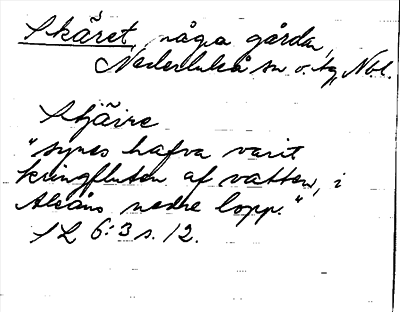 Skäret, några gårdar,
Nederluleå sn o. tg, Nbl.
Stjäire
"synes hafva varit
kringfluten af vatten, i
Aleåns nedre lopp."
SL 6:3 s. 12.